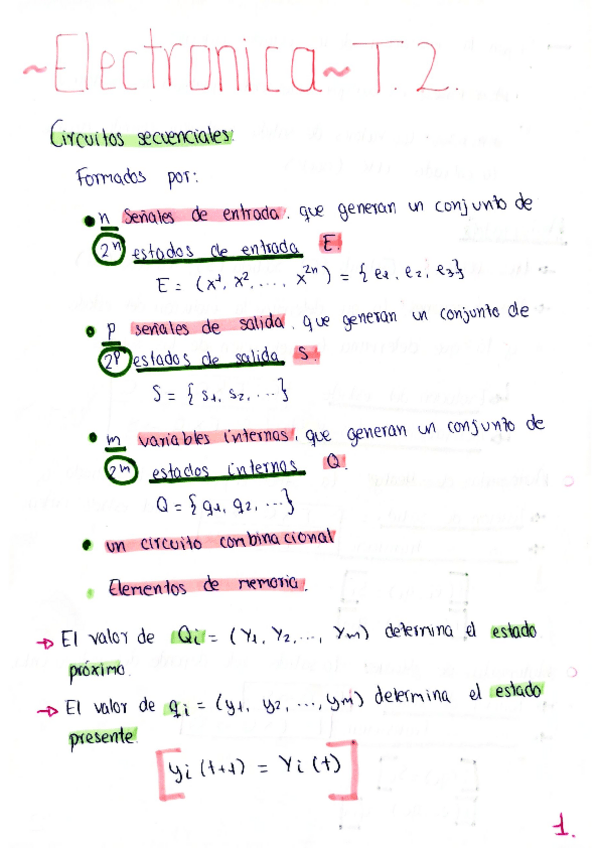 ~Electronica~ T2.
Circuitos secuenciales:
Formados por:
• n señales de entrada, que generan un conjunto de
2ⁿ estados de entrada E.
E = (x¹, x², ..., x²ⁿ) = { e1, e2, e3}
• p señales de salida, que generan un conjunto de
2ᵖ estados de salida S.
S = { s1, s2, ...}
• m variables internas, que generan un conjunto de
2ᵐ estados internos Q.
Q = { q1, q2, ...}
• un circuito combinacional
• Elementos de memoria.
→ El valor de Qi = (Y1, Y2, ..., Ym) determina el estado
próximo.
→ El valor de qi = (y1, y2, ..., ym) determina el estado
presente.
[yi (t+t) = Yi (t)]
1.